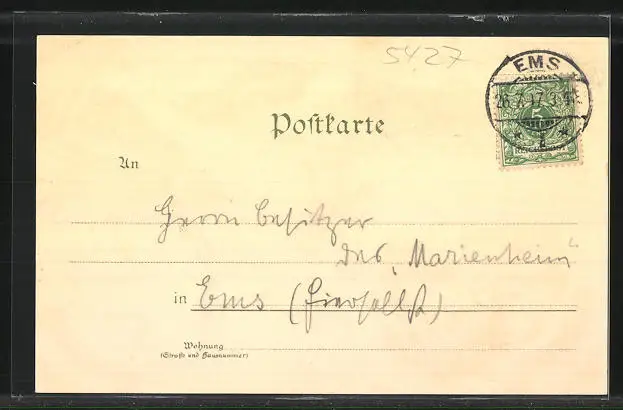 5427
EMS
26.7.97.3-4N.
5
REICHSPOST
Postkarte
An
Herrn Besitzer
des „Marienheim“
in Ems (hierselbst)
Wohnung
(Straße und Hausnummer)